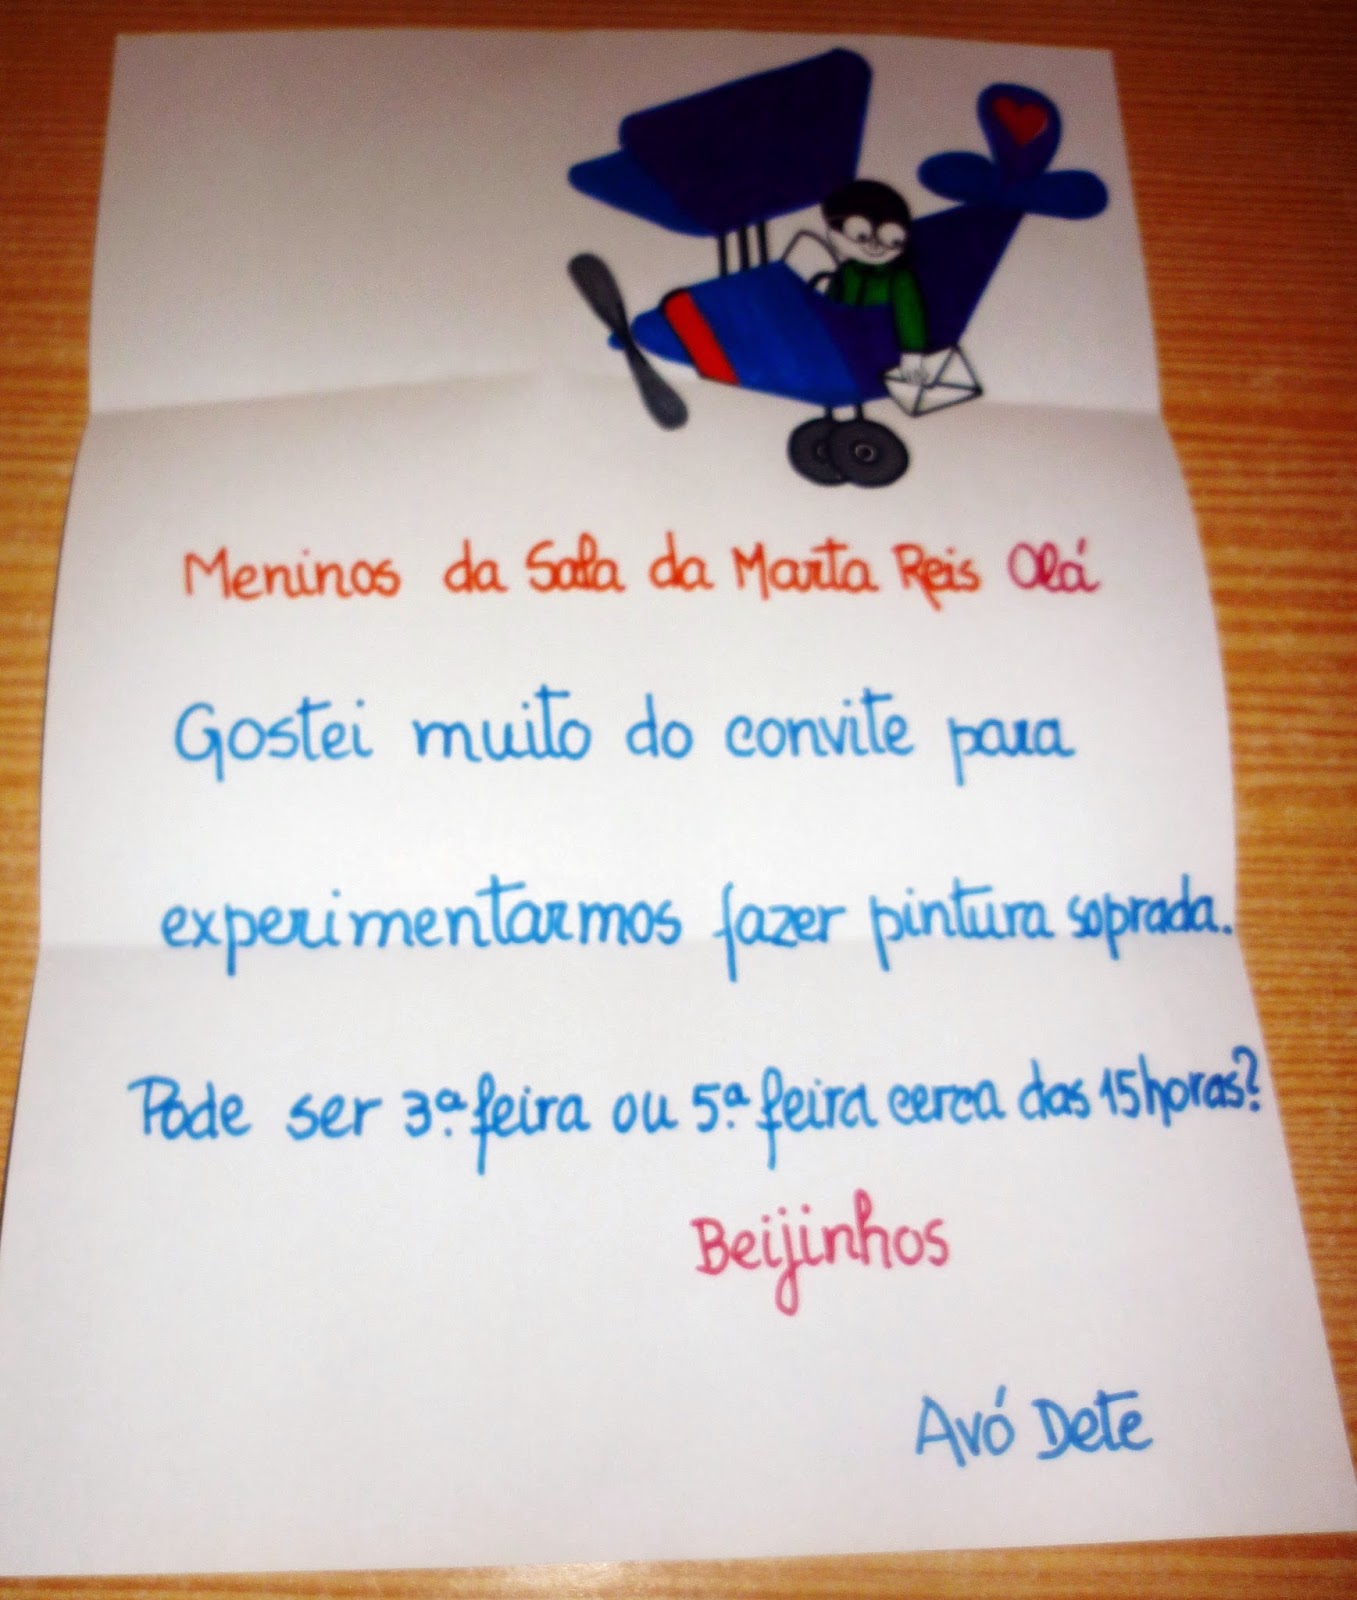 Meninos da Sala da Marta Reis Olá
Gostei muito do convite para
experimentarmos fazer pintura soprada.
Pode ser 3.ª feira ou 5.ª feira cerca das 15 horas?
Beijinhos
Avó Dete